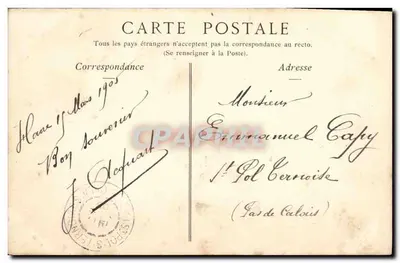 CARTE POSTALE
Tous les pays étrangers n'acceptent pas la correspondance au recto.
(Se renseigner à la Poste).
Correspondance
Adresse
15 Mars 1905
Bon souvenir
J.
Monsieur
Emmanuel Capy
St Pol Ternoise
(Pas de Calais)